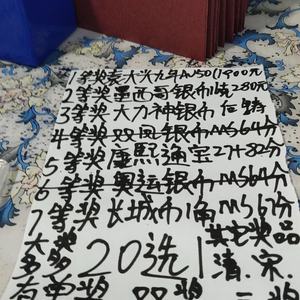 1等奖袁大头九年AU50(1900元
2等奖墨西哥银币 280元
3等奖大力神银币
4等奖双凤银币MS64分
5等奖康熙通宝27+82分
6等奖奥运银币MS64分
7等奖长城币1角MS67分
大奖 20选1 其它奖品
多多 清.宋.